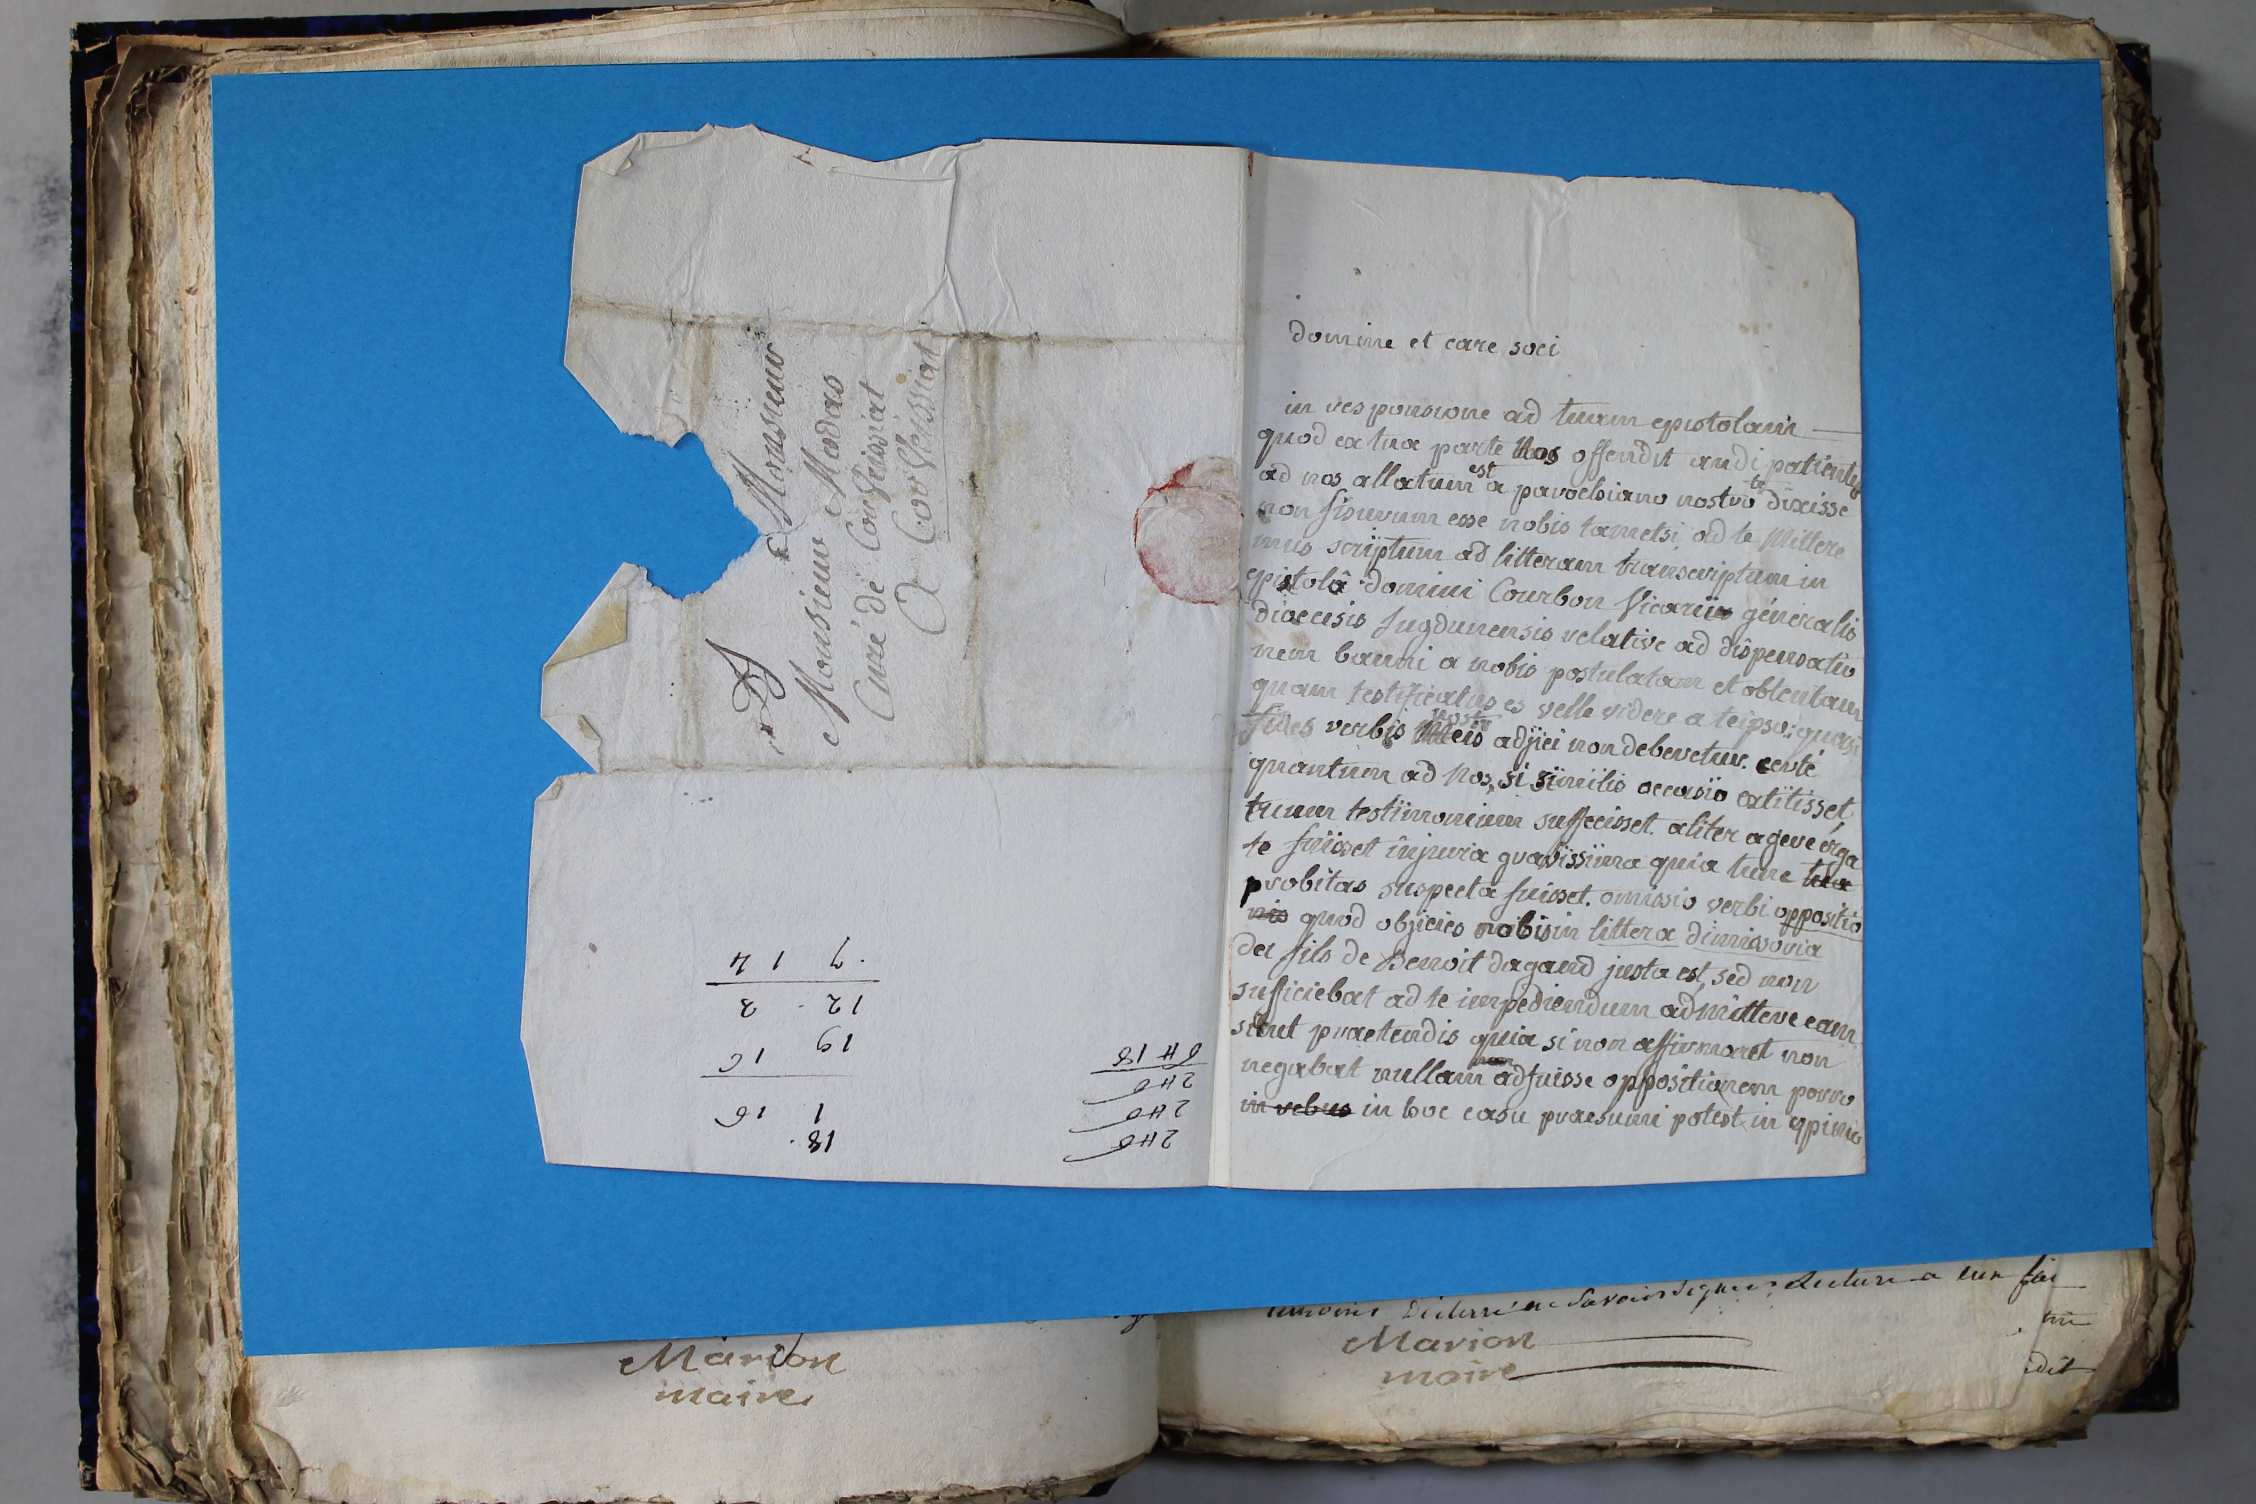 A Monsieur
Monsieur Modas
Curé de Courfissiat
A Courfissiat
7 1 4
12 3
19 16
1 16
18
8 # 18
2 # 6
2 # 6
2 # 6
domine et care soci
in responsione ad tuam epistolam
quod ex tua parte nos offendit audi patienter
ad nos allatum est a parochiano nostro te dixisse
non fisurum esse nobis tametsi ad te mittere
mus scriptum ad litteram transcriptum in
epistolâ domini Courbon Vicarii géneralis
dioecesis lugdunensis relative ad dispensatio
nem banni a nobis postulatam et obtentam
quam testificatus es velle videre a teipso: quasi
fides verbis meis nostris adjici non deberetur. certé
quantum ad nos, si similis occasio extitisset
tuum testimonium suffecisset. aliter agere erga
te fuisset injuria gravissima quia tunc tua
probitas suspecta fuisset. omissio verbi oppositio
nis quod objicies nobis in littera dimissoria
der fils de Benoit dagand justa est, sed non
sufficiebat ad te impediendum admittere eam
sicut praetendis quia si non affirmaret non
negabat nullam non adfuisse oppositionem porro
in rebus in hoc casu praesumi potest in
Marion
maire
declarré ne savoir signer, Lecture a eux fai
Marion
maire
dit